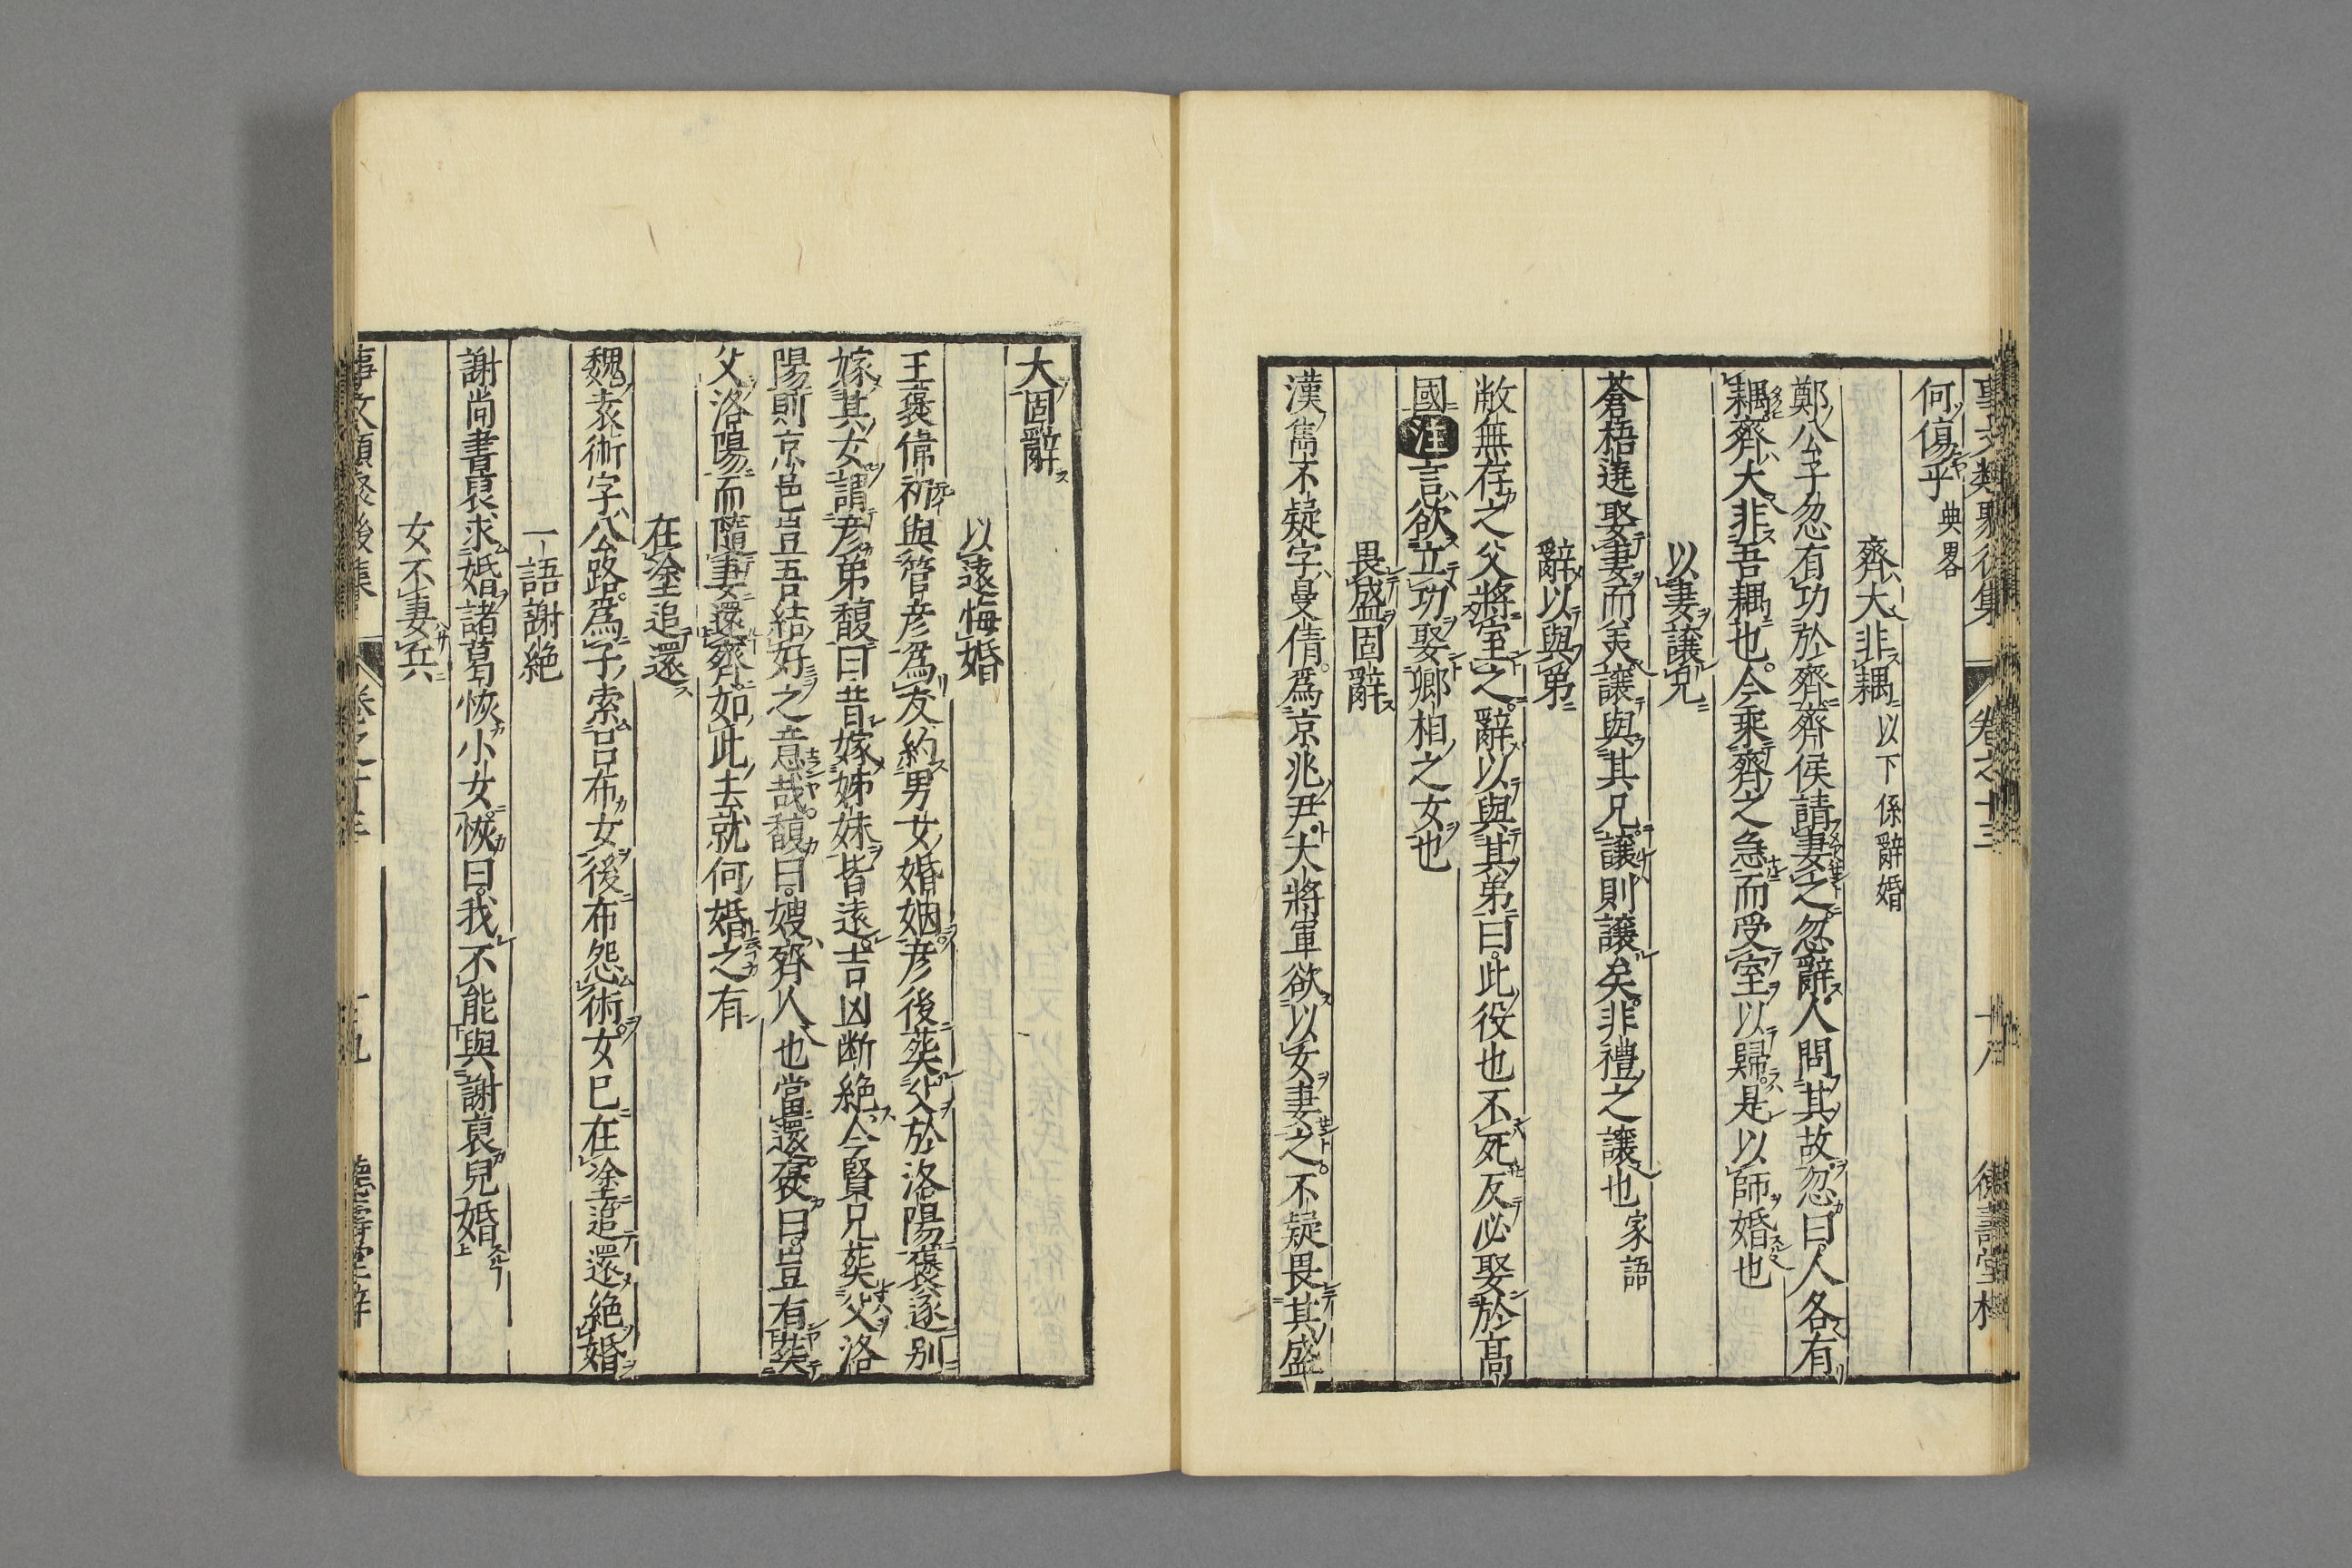 何傷乎 典畧
齊大非耦 以下係辭婚
鄭公子忽有功於齊齊侯請妻之忽辭人問其故忽曰人各有
耦齊大非吾耦也今乘齊之急而受室以歸是以師婚也
以妻讓兄
蒼梧遶娶妻而美讓與其兄讓則讓矣非禮之讓也 家語
辭以與弟
敝無存之父將室之辭以與其弟曰此役也不死反必娶於髙
國 注 言欲立功娶卿相之女也
畏盛固辭
漢雋不疑字曼倩爲京兆尹大將軍欲以女妻之不疑畏其盛
大固辭
以遠悔婚
王褒偉初與管彦爲友約男女婚姻彦後葬父於洛陽褒遂别
嫁其女謂彦弟馥曰昔嫁姊妹皆遠吉凶断絶今賢兄葬父洛
陽則京邑豈吾結好之意哉馥曰嫂齊人也當還褒曰豈有葬
父洛陽而隨妻還齊如此去就何婚之有
在塗追還
魏袁術字公路爲子索吕布女後布怨術女已在塗追還絶婚
一語謝絶
謝尚書裒求婚諸葛恢小女恢曰我不能與謝裒兒婚
女不妻兵
事文類聚後集 卷之十三 十九